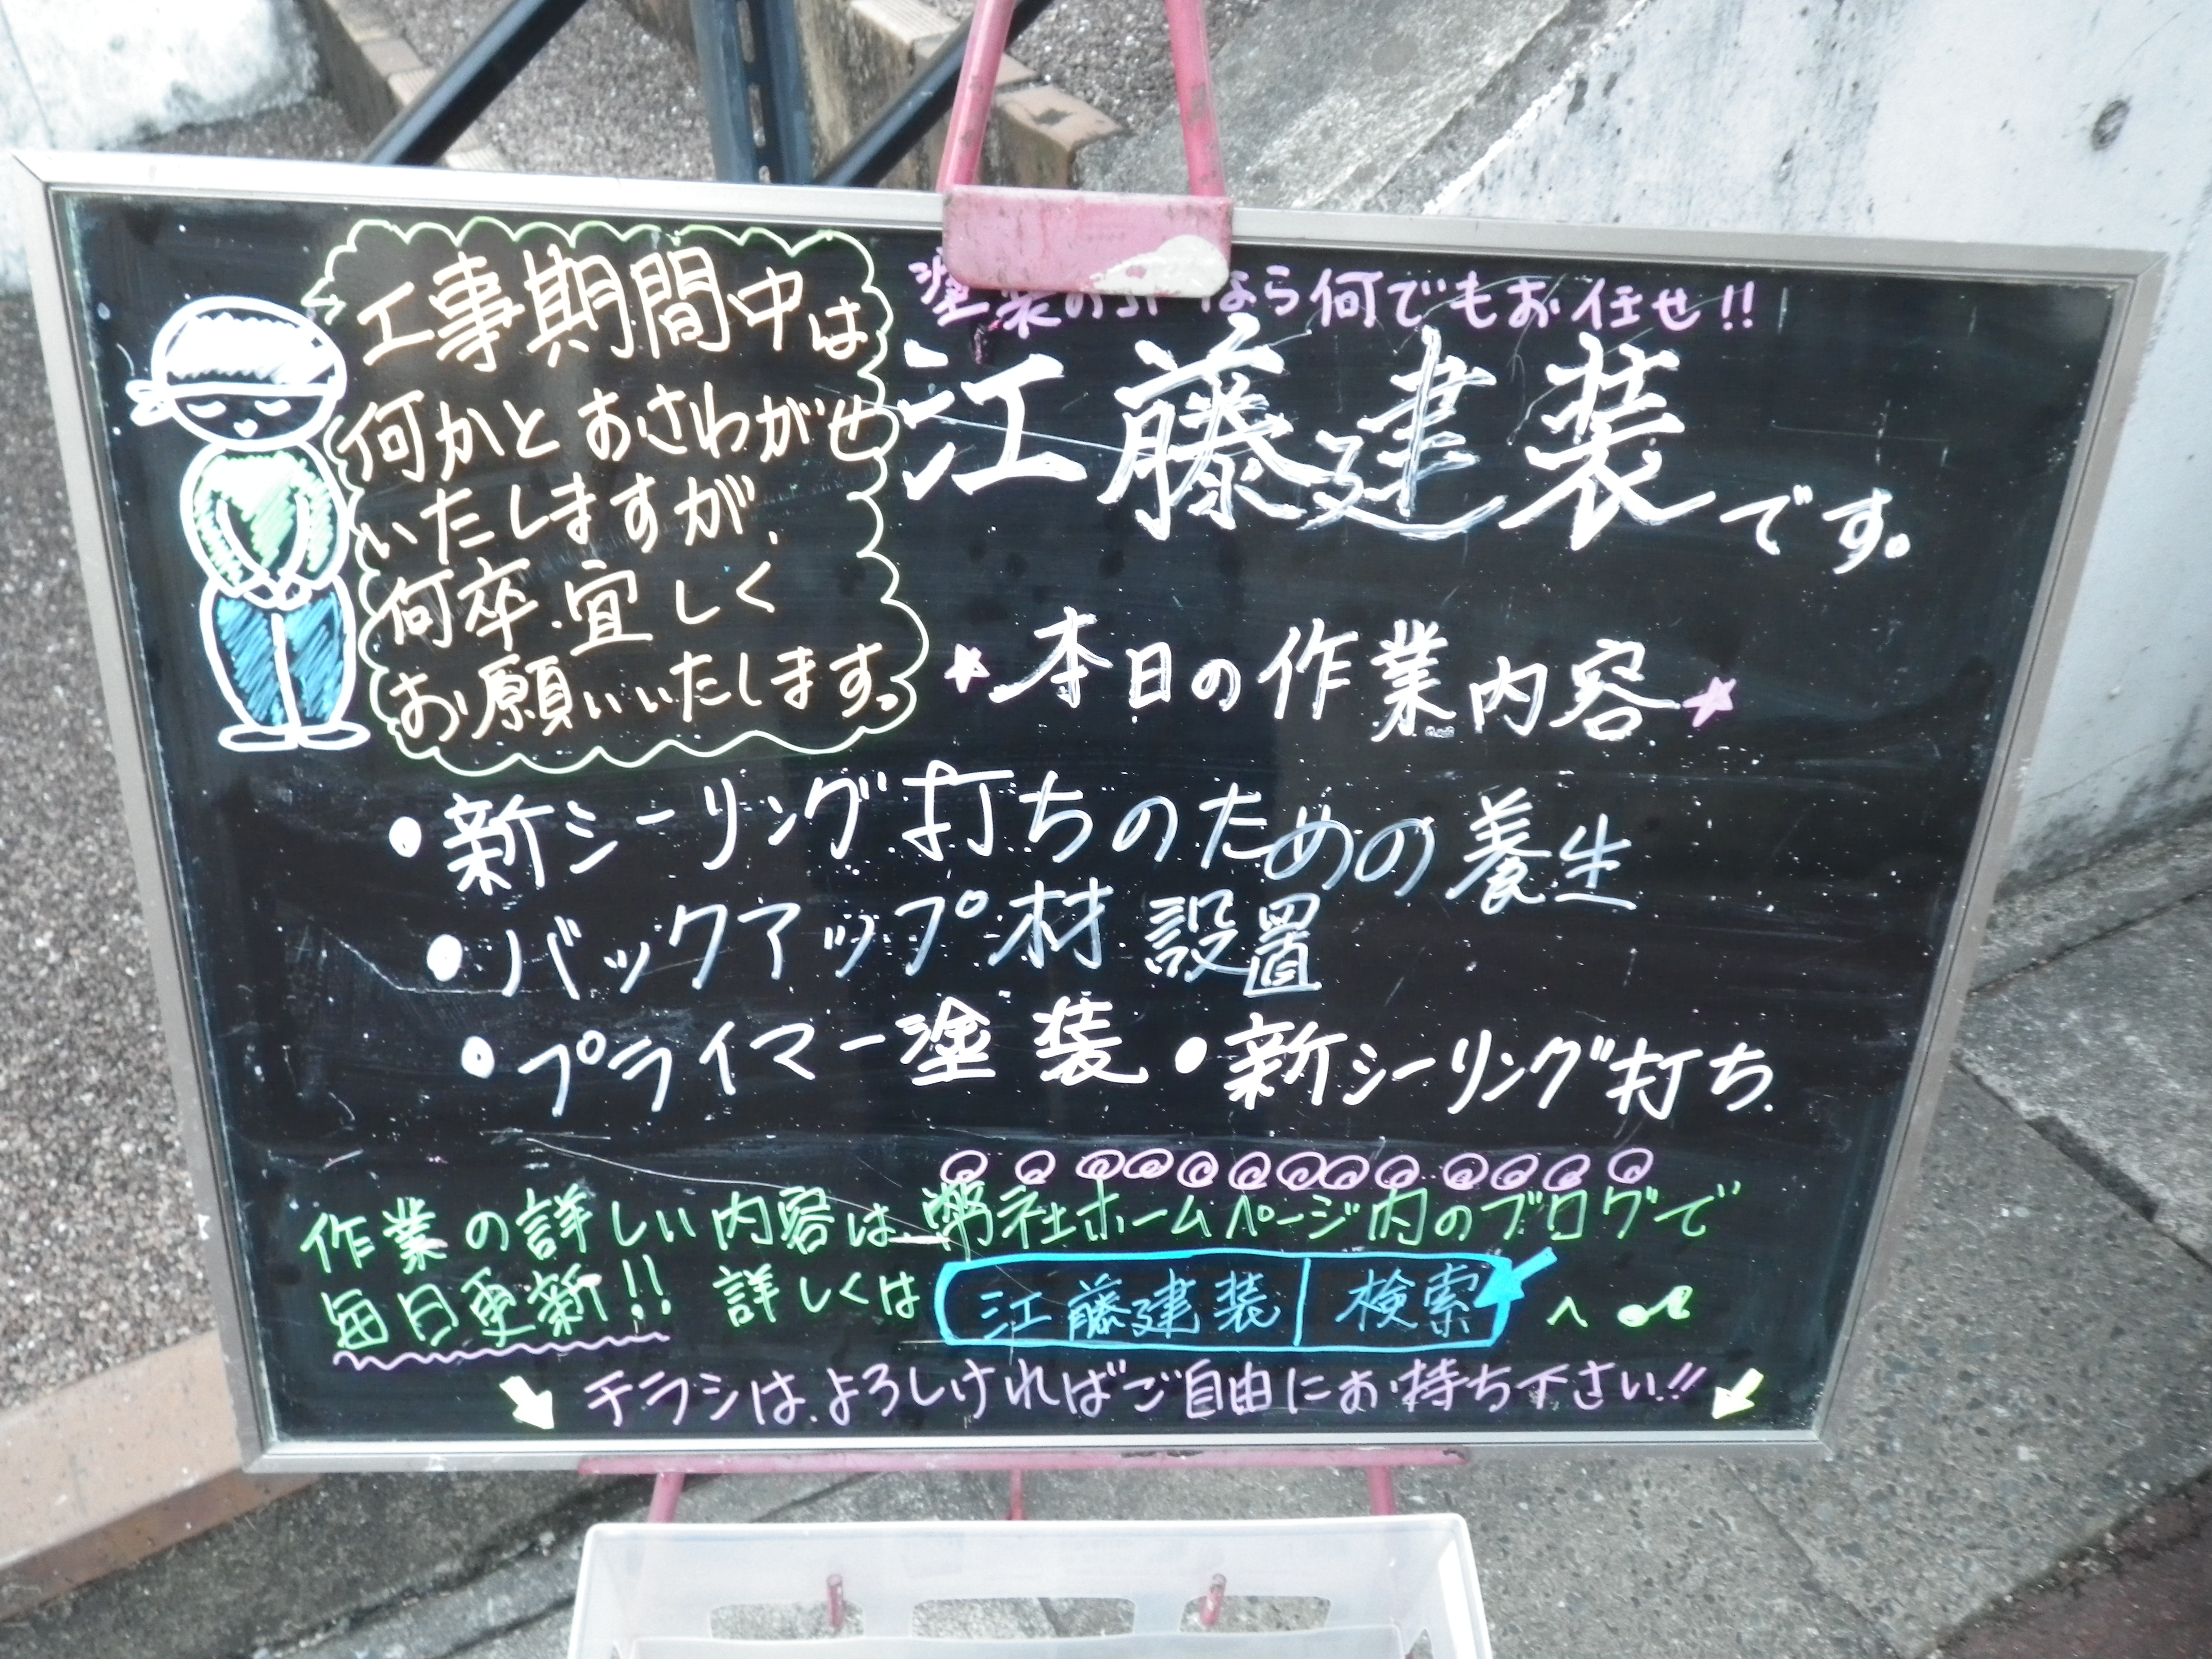 工事期間中は
何かとおさわがせ
いたしますが、
何卒宜しく
お願いいたします。
塗装の なら何でもお任せ!!
江藤建装です。
★本日の作業内容★
・新シーリング打ちのための養生
・バックアップ材設置
・プライマー塗装・新シーリング打ち
作業の詳しい内容は弊社ホームページ内のブログで
毎日更新!! 詳しくは 江藤建装 検索 へ
チラシは、よろしければご自由にお持ち下さい!!